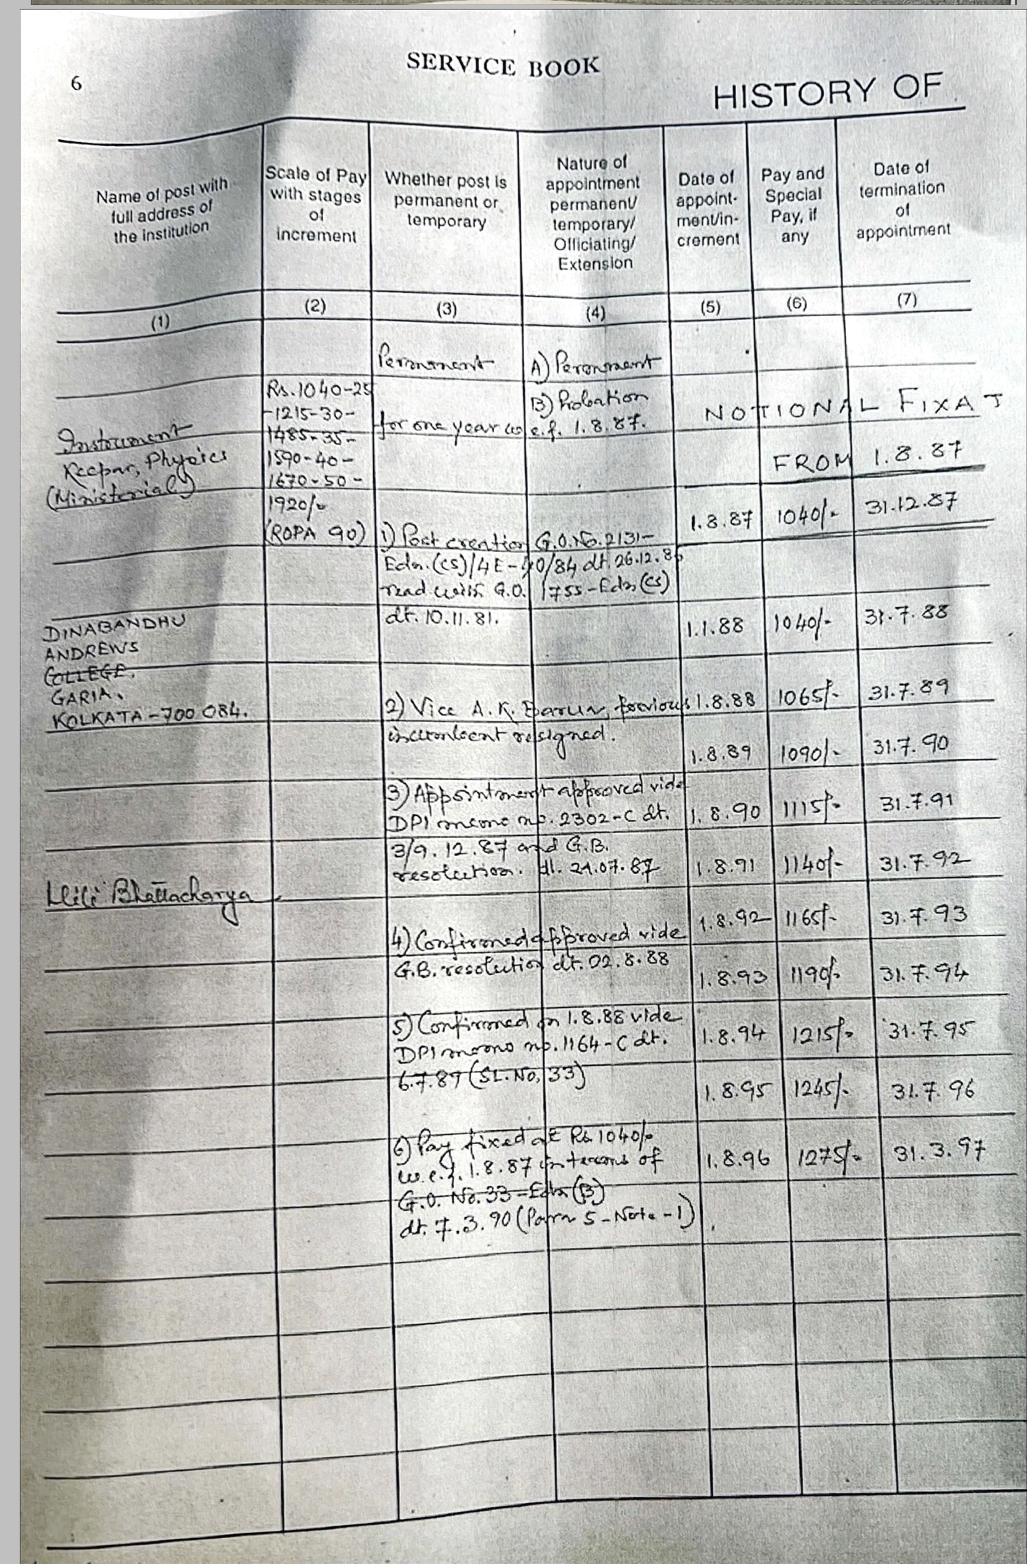 SERVICE BOOK
6
HISTORY OF
Name of post with
full address of
the Institution
Scale of Pay
with stages
of
increment
Whether post is
permanent or
temporary
Nature of
appointment
permanent/
temporary/
Officiating/
Extension
Date of
appoint-
ment/in-
crement
Pay and
Special
Pay, if
any
Date of
termination
of
appointment
(1)
(2)
(3)
(4)
(5)
(6)
(7)
Permanent
A) Permanent
B) Probation
for one year w.e.f. 1.8.87.
Rs. 1040-25
-1215-30-
1485-35-
1590-40-
1670-50-
1920/-
(ROPA 90)
Instrument
Keeper, Physics
(Ministerial)
NOTIONAL FIXAT
FROM 1.8.87
1.8.87 1040/- 31.12.87
1) Post creation G.O. No. 2131-
Edn. (CS)/4E-40/84 dt. 26.12.86
read with G.O. 1755-Edn (CS)
dt. 10.11.81.
DINABANDHU
ANDREWS
COLLEGE,
GARIA,
KOLKATA-700 084.
1.1.88 1040/- 31.7.88
2) Vice A. K. Barua, previous
incumbent resigned.
1.8.88 1065/- 31.7.89
1.8.89 1090/- 31.7.90
3) Appointment approved vide
DPI memo no. 2302-C dt.
3/9.12.87 and G.B.
resolution. dt. 21.07.87
1.8.90 1115/- 31.7.91
1.8.91 1140/- 31.7.92
Bhattacharya
4) Confirmed approved vide
G.B. resolution dt. 02.8.88
1.8.92 1165/- 31.7.93
1.8.93 1190/- 31.7.94
5) Confirmed on 1.8.88 vide
DPI memo no. 1164-C dt.
6.7.89 (SL. NO. 33)
1.8.94 1215/- 31.7.95
1.8.95 1245/- 31.7.96
6) Pay fixed at Rs. 1040/-
w.e.f. 1.8.87 in terms of
G.O. No. 33-Edn (B)
dt. 7.3.90 (Para 5-Note-1)
1.8.96 1275/- 31.3.97